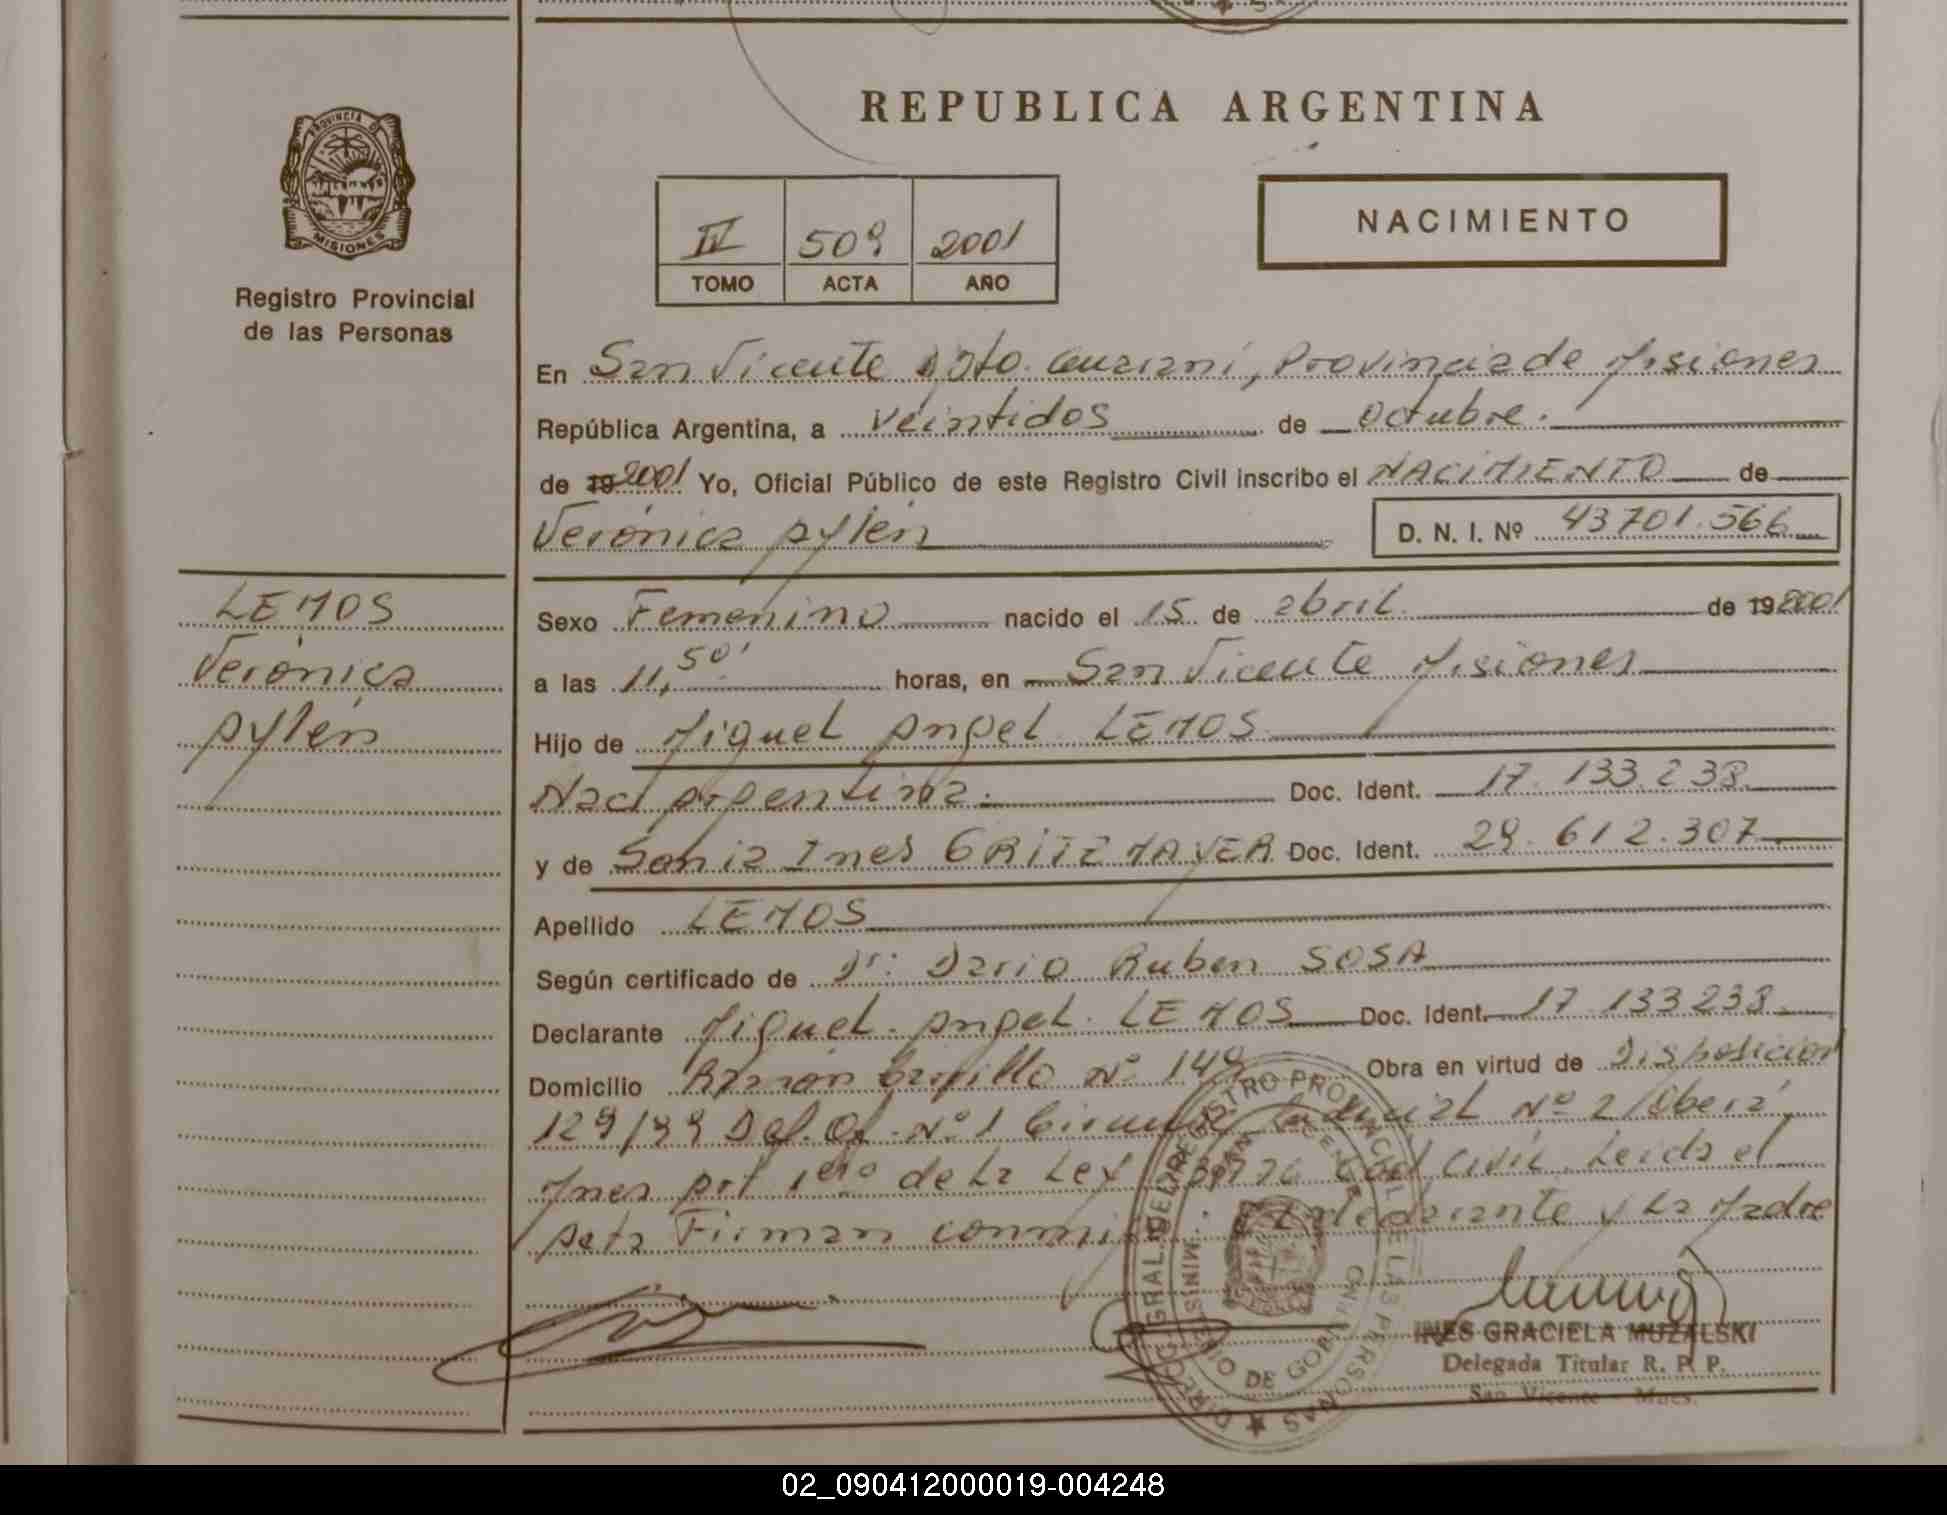 REPUBLICA ARGENTINA
PROVINCIA D
MISIONES
Registro Provincial
de las Personas
IV 509 2001
TOMO ACTA AÑO
NACIMIENTO
En San Vicente Dpto. Guaraní, Provincia de Misiones
República Argentina, a veintidos de octubre.
de 19 2001 Yo, Oficial Público de este Registro Civil inscribo el NACIMIENTO de
Verónica Aylén D. N. I. Nº 43701.566
LEMOS
Verónica
Aylén
Sexo Femenino nacido el 15 de abril de 19 2001
a las 11,50' horas, en San Vicente Misiones
Hijo de Miguel Angel LEMOS
Nac. Argentina. Doc. Ident. 17.133.238
y de Sonia Ines GRITZMAYER Doc. Ident. 29.612.307
Apellido LEMOS
Según certificado de Dr: Dario Ruben SOSA
Declarante Miguel Angel LEMOS Doc. Ident. 17 133 238
Domicilio Ramón Carrillo Nº 149 Obra en virtud de Disposición
129/99 Def. Of. Nº 1 Judicial Nº 2 Oberá
Mnes Art 1ero de la Ley Cod Civil. Leida el
Acta Firman conmigo El declarante y La Madre
DIRECC. GRAL. DEL REGISTRO PROVINCIAL DE LAS PERSONAS
MINISTERIO DE GOBIERNO
SAN VICENTE
INES GRACIELA MUZALSKI
Delegada Titular R. P. P.
San Vicente - Mnes.
02_090412000019-004248